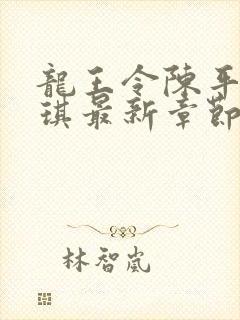 龍王令陳平
琪最新章節
林智嵐